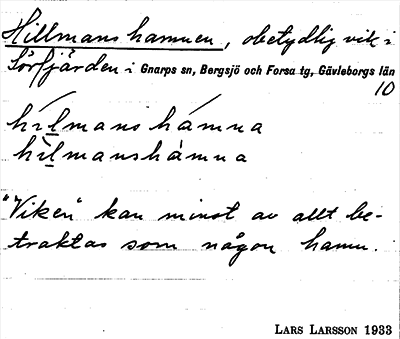 Hillmanshamnen, obetydlig vik i
Sörfjärden i Gnarps sn, Bergsjö och Forsa tg, Gävleborgs län
10
hílmanshámna
hìlmanshámna
"Viken" kan minst av allt be-
traktas som någon hamn.
LARS LARSSON 1933